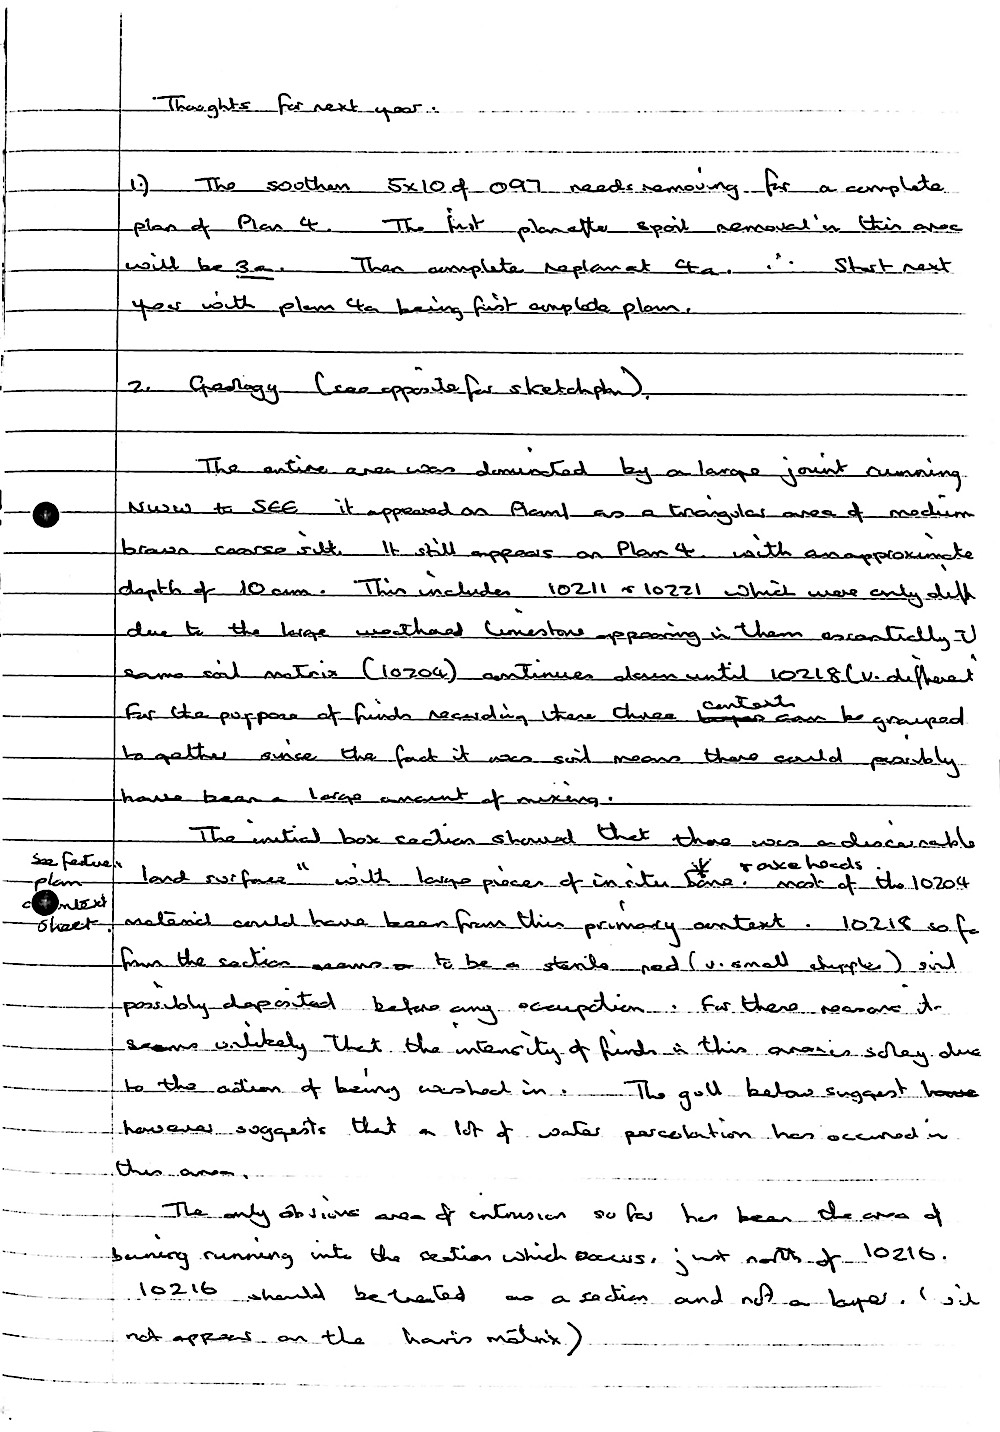 Thoughts for next year:
1.) The soothern 5x10 of 097 needs removing for a complete
plan of Plan 4. The first plan after spoil removal in this area
will be 3a. Then complete replan at 4a. ∴ Start next
year with plan 4a being first complete plan.
2. Geology (see opposite for sketch plan).
The entire area was dominated by a large joint running
NWW to SEE it appeared on Plan 1 as a triangular area of medium
brown coarse silt. It still appears on Plan 4 with an approximate
depth of 10 cm. This includes 10211 & 10221 which were only diff
due to the large weathered limestone appearing in them essentially
same soil matrix (10204) continues down until 10218 (v. different
For the purpose of finds recording these three contexts can be grouped
together since the fact it was soil means there could possibly
have been a large amount of mixing.
The initial box section showed that there was a discernable
see feature
plan
context
sheet.
land surface" with large pieces of in situ bone. * + axe heads. most of the 10204
material could have been from this primary context. 10218 so far
from the section seems to be a sterile red (v. small) soil
possibly deposited before any occupation. For these reasons it
seems unlikely that the intensity of finds in this area is soley due
to the action of being washed in. The gull below suggest
however suggests that a lot of water percolation has occured in
this area.
The only obvious area of intrusion so far has been the area of
burning running into the section which occurs, just north of 10216.
10216 should be treated as a section and not a layer. (
not appear on the harris matrix)